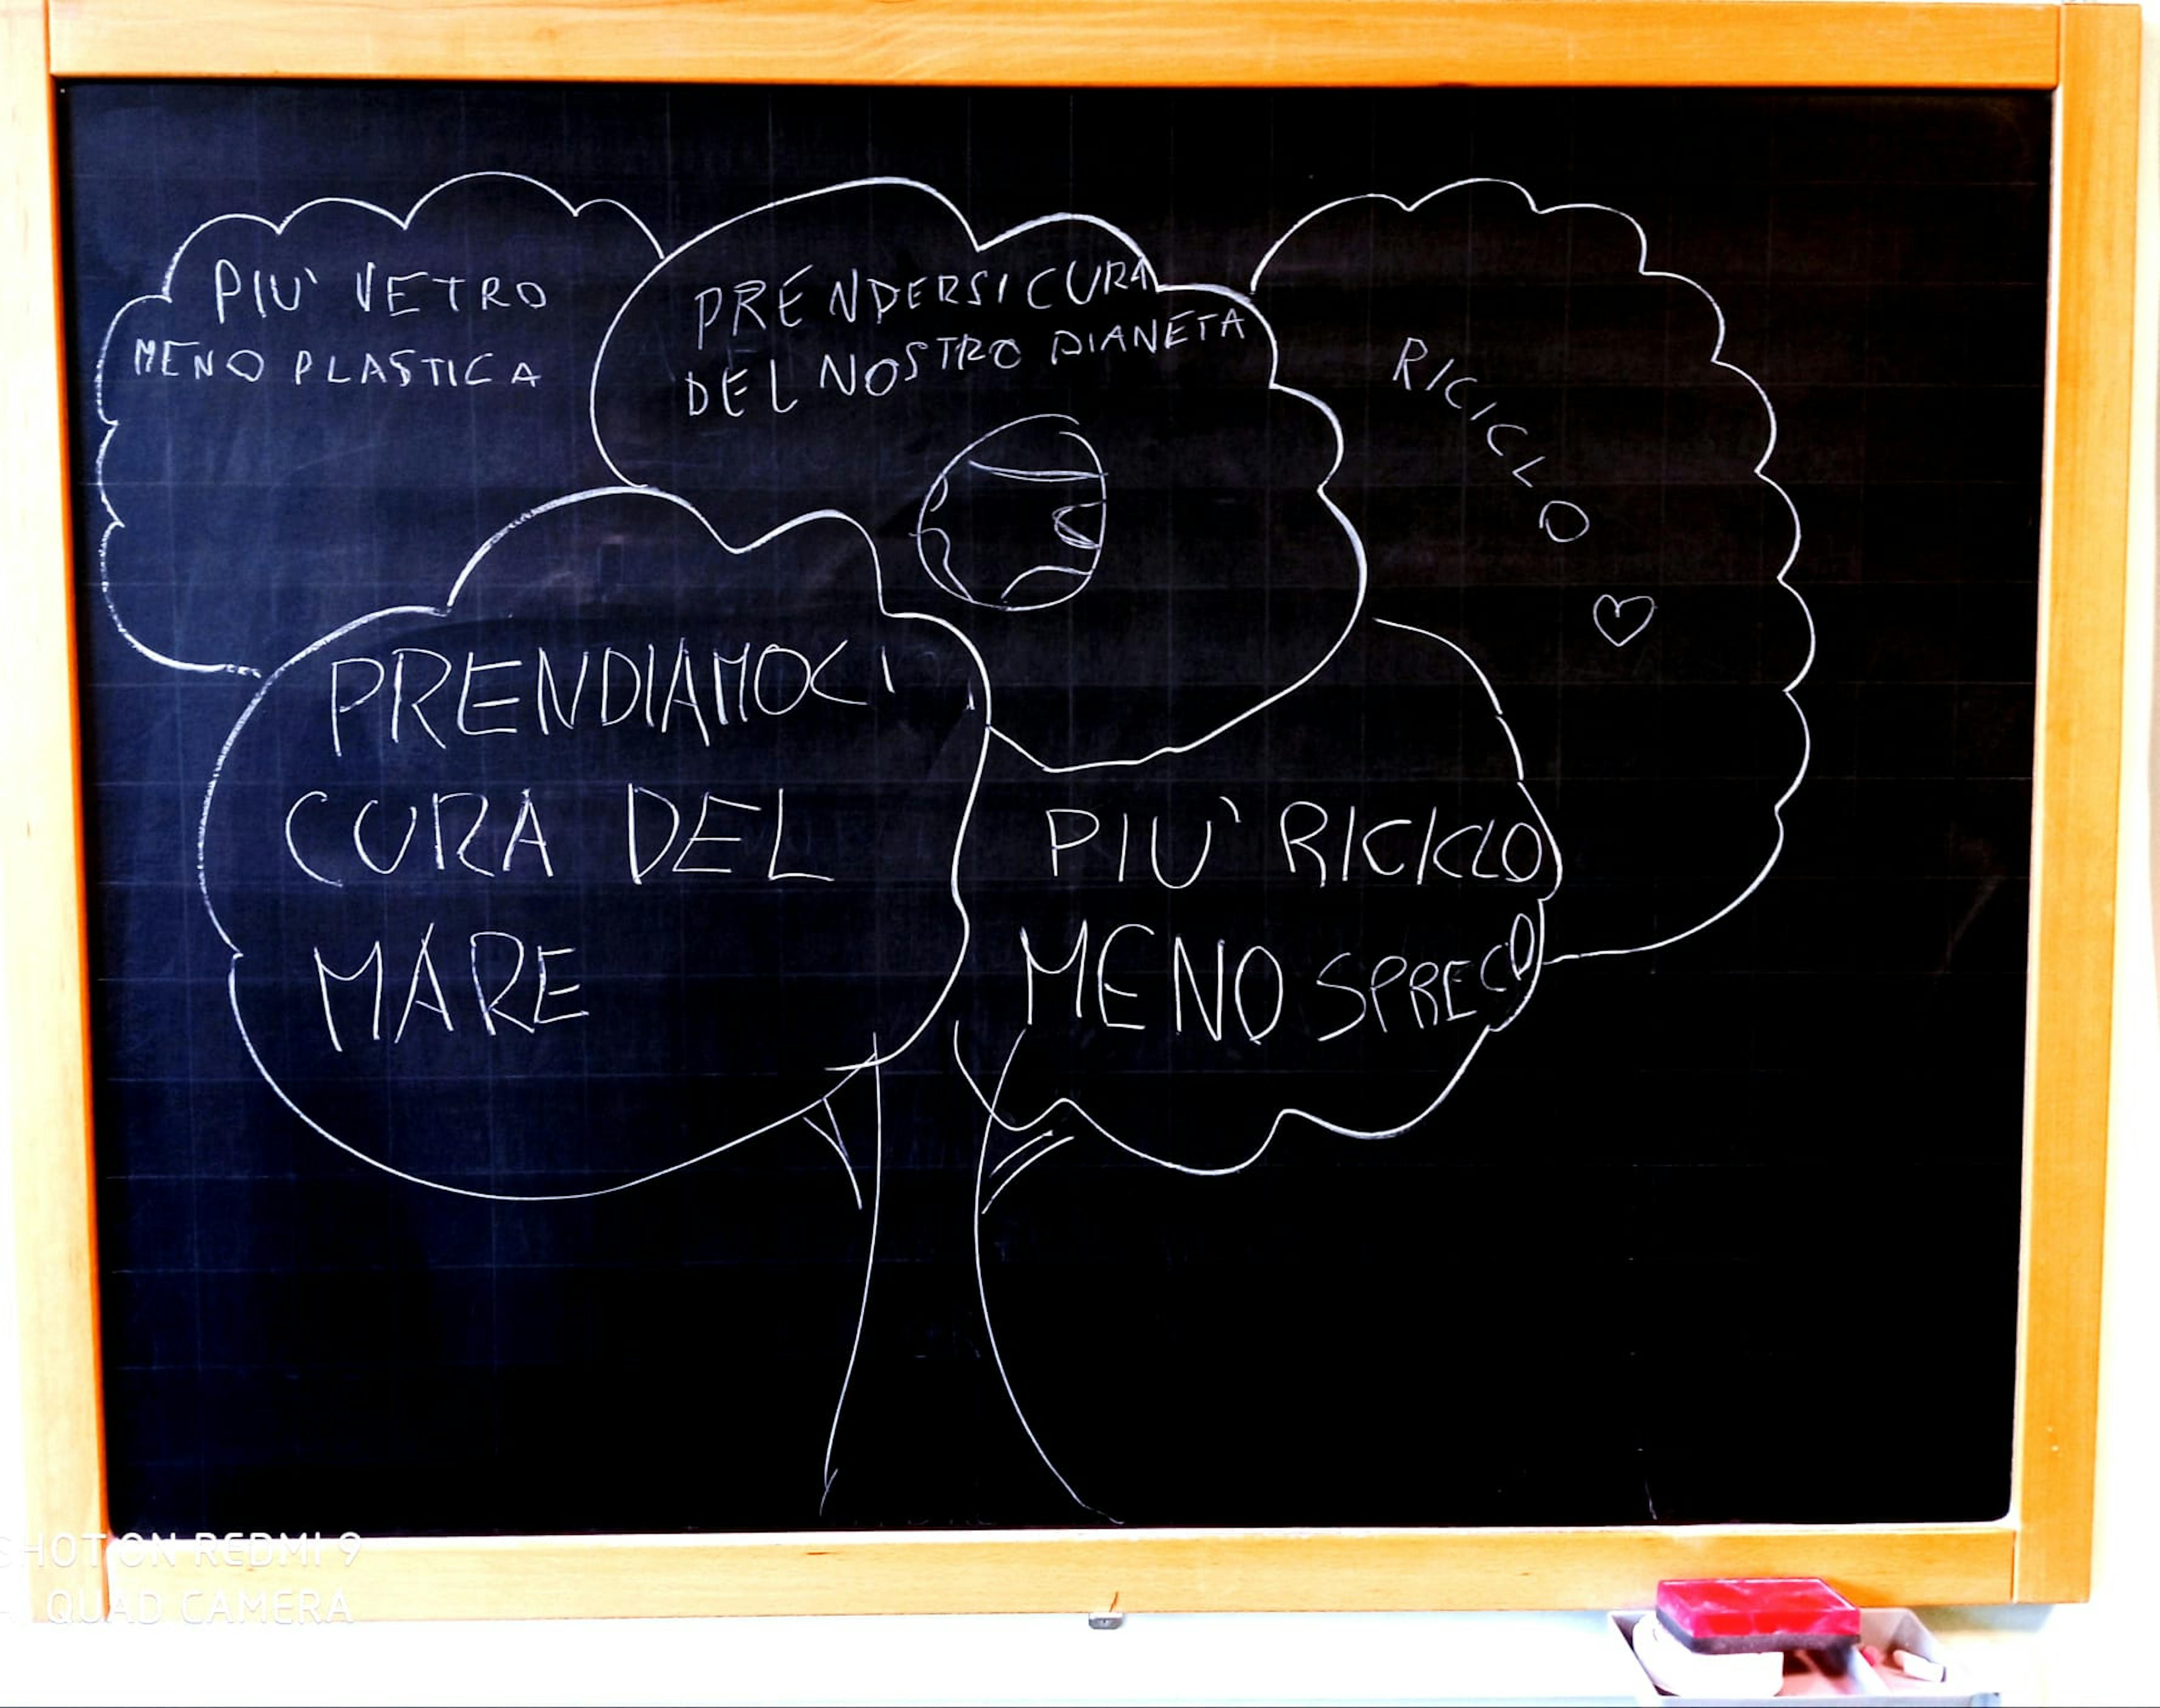 PIU' VETRO
MENO PLASTICA
PRENDERSI CURA
DEL NOSTRO PIANETA
RICICLO
PRENDIAMOCI
CURA DEL
MARE
PIU' RICICLO
MENO SPRECO
SHOT ON REDMI 9
AI QUAD CAMERA